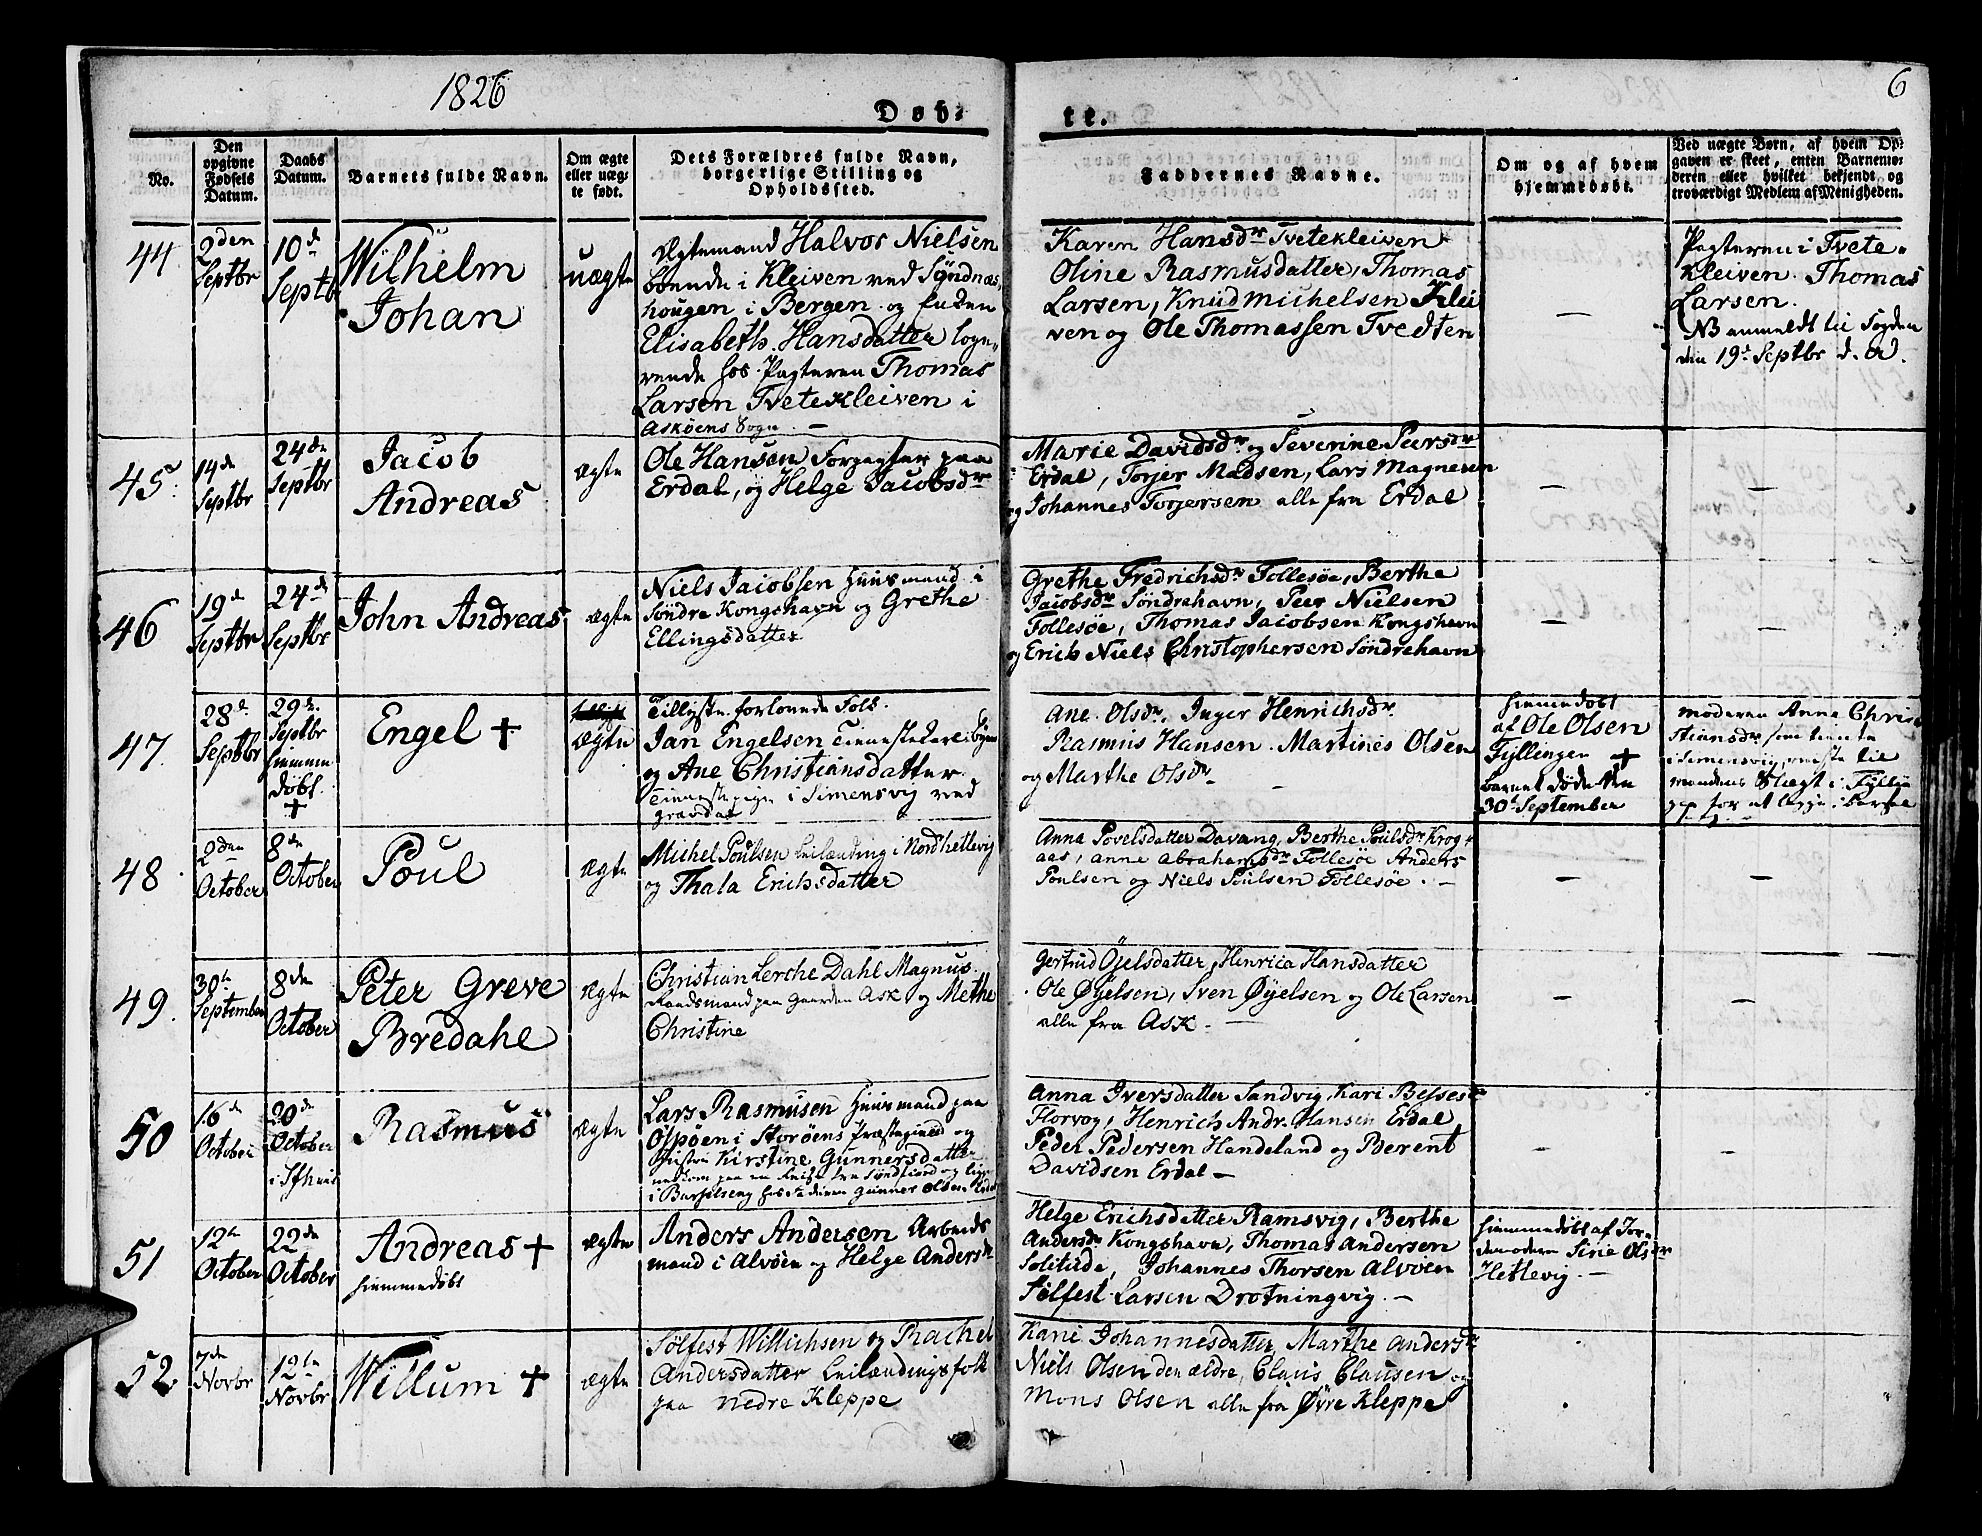 1826
6
Døb-
te.
No.
Den opgivne Fødsels Datum.
Daabs Datum.
Barnets fulde Navn.
Om ægte eller uægte født.
Dets Forældres fulde Navn, borgerlige Stilling og Opholdssted.
Faddernes Navne.
Om og af hvem hjemmedøbt.
Ved uægte Børn, af hvem Op-
gaven er skeet, enten Barnemo-
deren eller hvilket bekjendt og
troværdigt Medlem af Menigheden.
44.
2den Septbr
10d Septb
Wilhelm
Johan
uægte
Ægtemand Halvor Nielsen
boende i Kleiven ved Syndnæs
hougen i Bergen og Enken
Elisabeth Hansdatter loge-
rende hos Pagteren Thomas
Larsen Tvetekleiven i
Askøens Sogn. —
Karen Hansdr Tvetekleiven
Oline Rasmusdatter, Thomas
Larsen, Knud Michelsen Klei
ven og Ole Thomassen Tvedten
—
Pagteren i Tvete-
kleiven. Thomas
Larsen.
NB anmeldt til Fogden
den 19d Septbr d. A.
45.
14de Septbr
24de Septbr
Jacob
Andreas
Ægte
Ole Hansen Forpagter paa
Erdal, og Helge Jacobsdr
Marie Davidsdr og Severine Peersdr
Erdal, Torjer Madsen, Lars Magnesen
og Johannes Torjersen alle fra Erdal
—
—
46
19d Septbr
24de Septbr
John Andreas
Ægte
Niels Jacobsen Huusmand i
Søndre Kongshavn og Grethe
Ellingsdatter
Grethe Fredrichsdr Follesøe, Berthe
Jacobsdr Søndrehavn, Peer Nielsen
Follesøe, Thomas Jacobsen Kongshavn
og Erich Niels Christophersen Søndrehavn
—
—
47.
28d Septbr
29de Septbr
hjemme
døbt.
+
Engel +
Ægte
Tillyste forlovede Folk.
Jan Engelsen Tienestekarl i Byen
og Ane Christiansdatter.
Tienestepige i Simensvig ved
Gravdal
Ane Olsdr, Inger Henrichsdr
Rasmus Hansen. Martines Olsen
og Marthe Olsdr —
hjemmedøbt
af Ole Olsen
Tyllingen +
Barnet døde den
30d September
moderen Anna Chris
tiansdr som tiente
i Simensvig, reiste til
mandens Slægt i
for at ligge i Barsel
48
2den October
8de October
Poul
Ægte
Michel Poulsen Leilænding i Nordhetlevig
og Thala Erichsdatter
Anna Povelsdatter Davang, Berthe Poulsdr Krog
aas, Anne Abrahamsdr Follesøe Anders
Poulsen og Niels Poulsen Follesøe. —
—
—
49.
30te September
8de October
Peter Greve
Bredahl
Ægte
Christian Lerche Dahl Magnus.
Raadsmand paa Gaarden Ask og Methe
Christine
Gertrud Øjelsdatter, Henrica Hansdatter
Ole Øyelsen, Sven Øyelsen og Ole Larsen
alle fra Ask. —
—
—
50
16de October
20de October
Rasmus
Ægte
Lars Rasmusen Huusmand paa
Ospøen i Storøens Præstegield og
Hustru Kirstine Gunnersdatter
Anna Iversdatter Sandvig, Kari Besses
Florvog, Henrich Andr. Hansen Erdal
Peder Pedersen Handeland og Berent
Davidsen Erdal —
—
—
51
12te October
22de October
Andreas +
hjemmedøbt
Ægte
Anders Andersen Arbeids
mand i Alvøen og Helge Andersdr
Helge Erichsdatter Ramsvig, Berthe
Andersdr Kongshavn, Thomas Andersen
Solitude, Johannes Thorsen Alvøen
Sølfest Larsen Drotningvig. —
hjemmedøbt af Jor-
demoderen Sirie Olsdr
Hetlevig. —
52
7de Novbr
12te Novbr
Willum +
Ægte
Sølfest Willichsen og Rachel
Andersdatter Leilændingsfolk
paa nedre Kleppe
Kari Johannesdatter, Marthe Andersdr
Niels Olsen den ældre, Claus Clausen og
Mons Olsen alle fra Øvre Kleppe